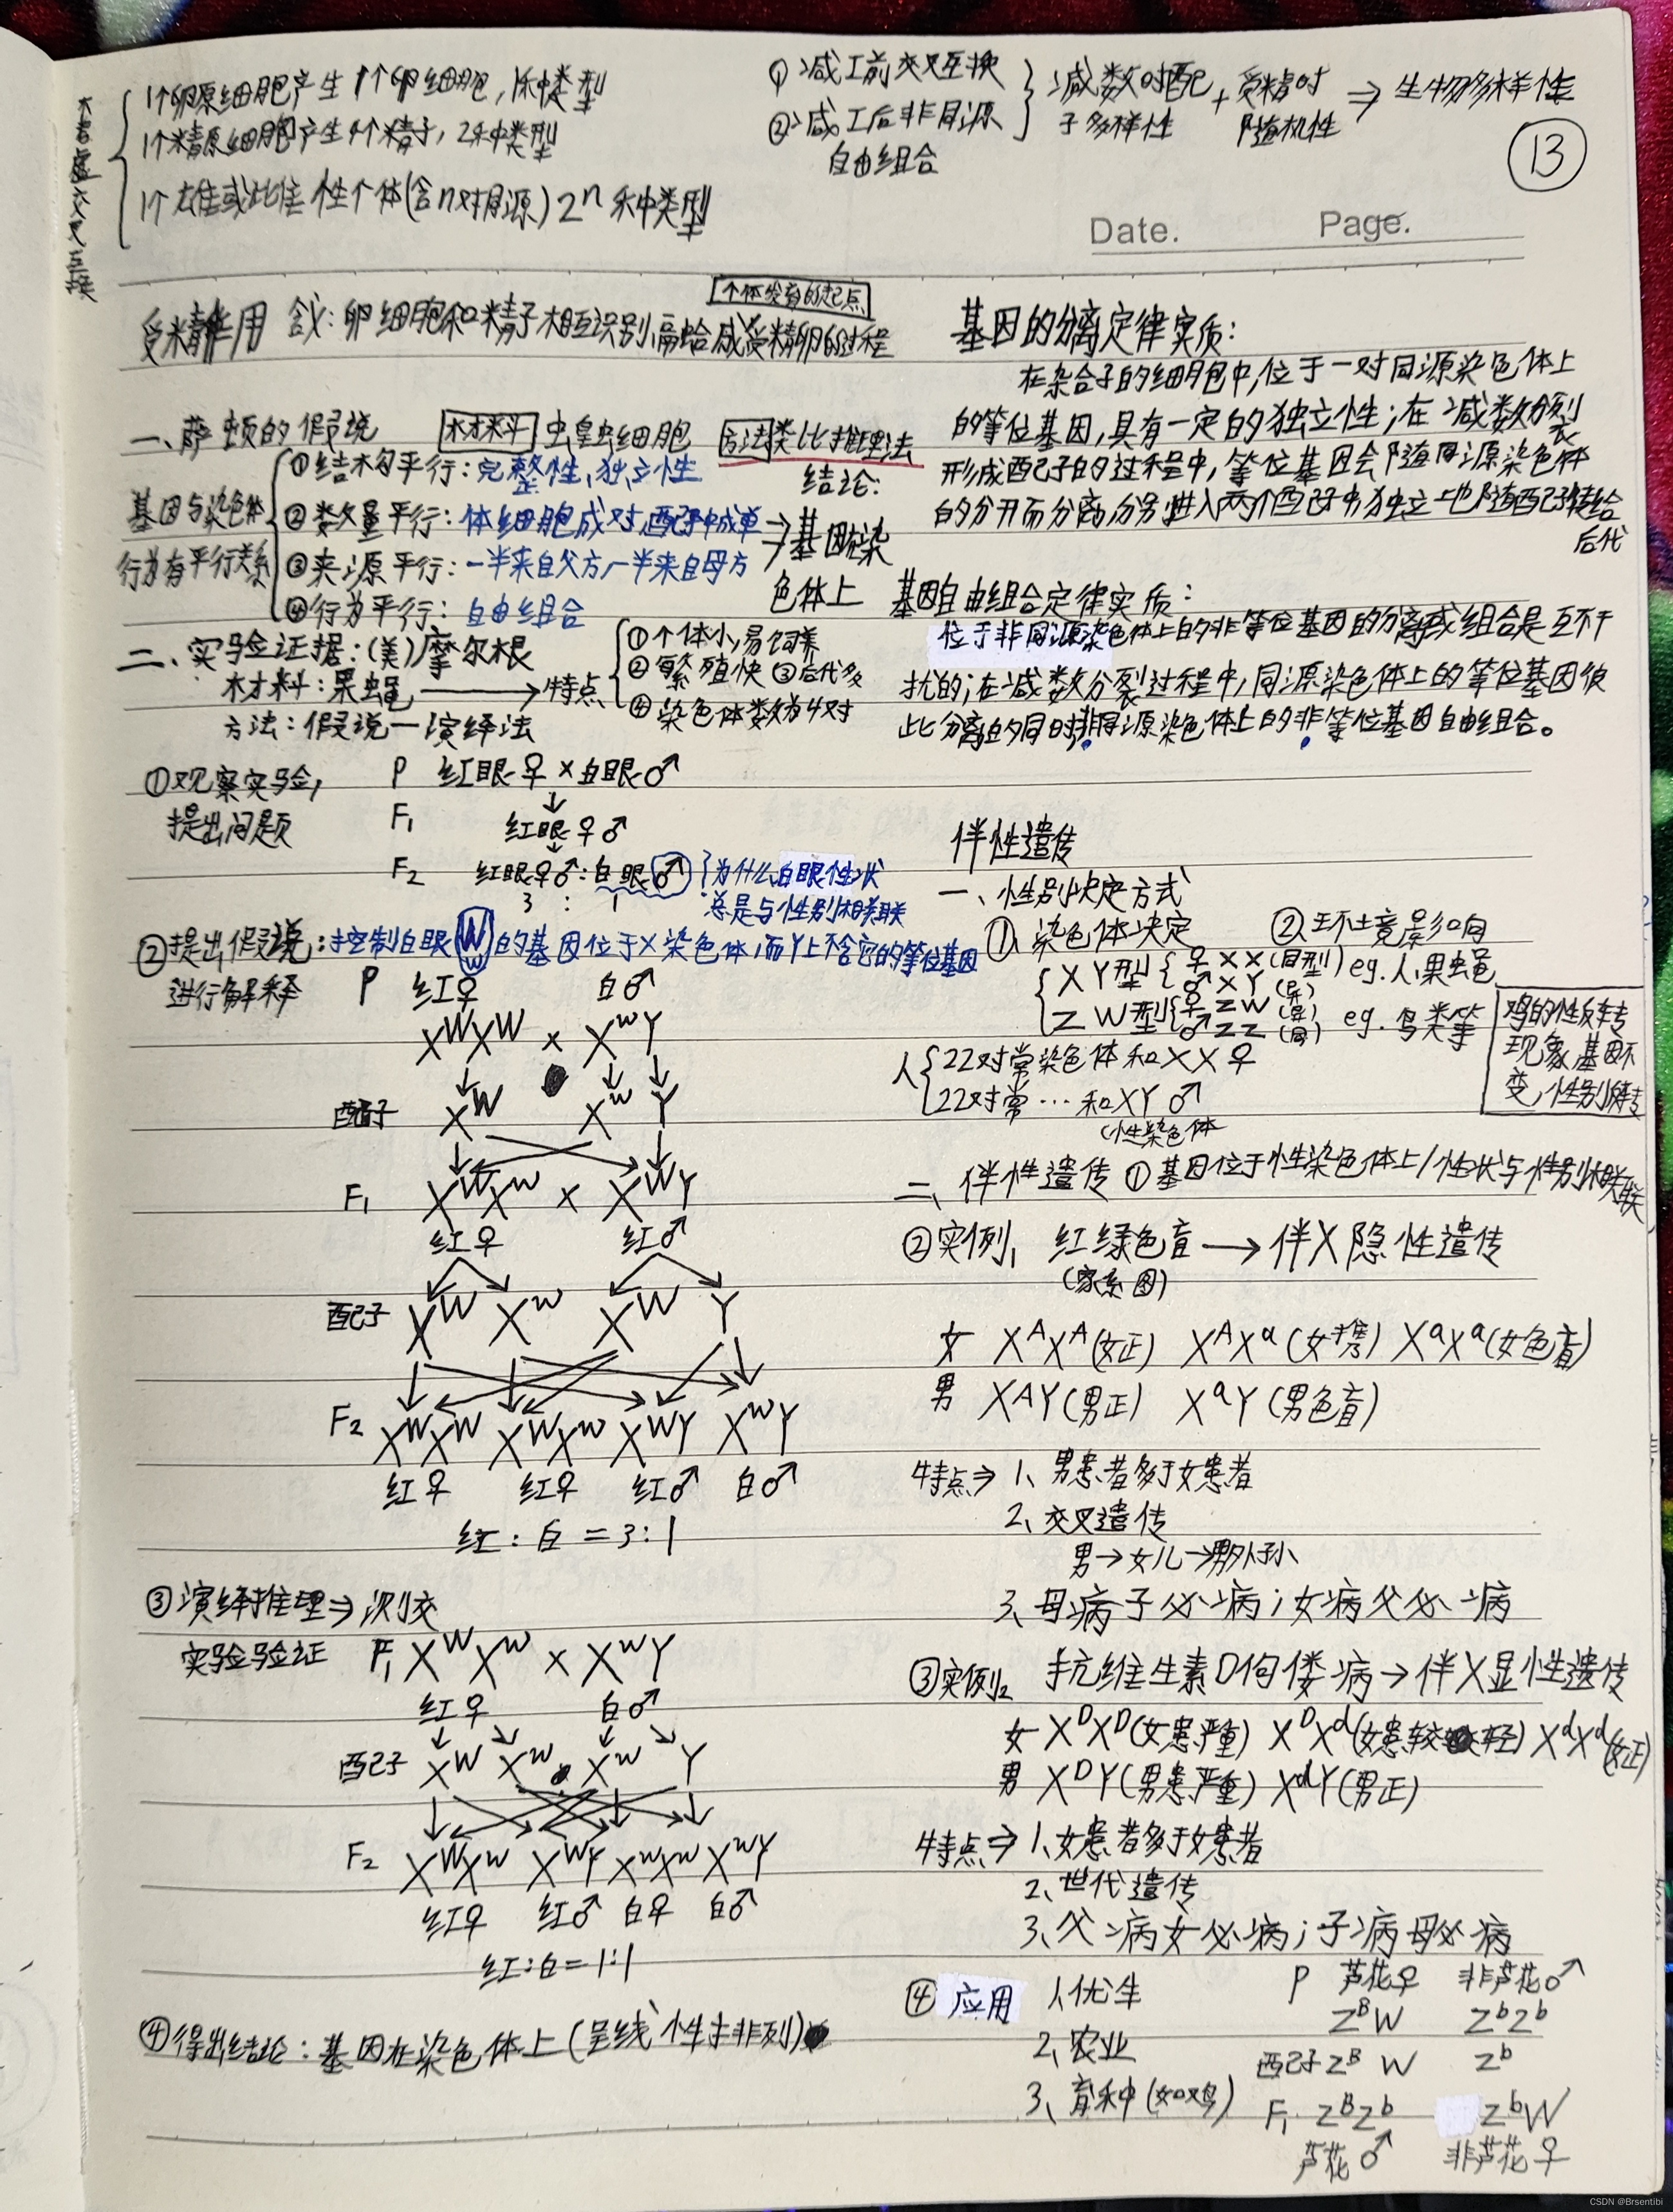 不考虑交叉互换
1个卵原细胞产生1个卵细胞,1种类型
1个精原细胞产生4个精子,2种类型
1个雄或雌性个体(含n对同源)2ⁿ种类型
①减Ⅰ前交叉互换
②减Ⅰ后非同源
自由组合
减数时配
子多样性
+
受精时
随机性
⇒ 生物多样性
13
Date. Page.
个体发育的起点
受精作用 含义:卵细胞和精子相互识别,融合成受精卵的过程
一、萨顿的假说 材料 蝗虫细胞 方法 类比推理法
基因与染色体
行为有平行关系
①结构平行:完整性,独立性
②数量平行:体细胞成对,配子中成单
③来源平行:一半来自父方,一半来自母方
④行为平行:自由组合
结论:
→基因在染
色体上
二、实验证据:(美)摩尔根
材料:果蝇 → 特点
①个体小,易饲养
②繁殖快 ③后代多
④染色体数为4对
方法:假说—演绎法
①观察实验,
提出问题
P 红眼♀×白眼♂
↓
F₁ 红眼♀♂
↓
F₂ 红眼♀♂:白眼♂
3 : 1
为什么白眼性状
总是与性别相关联
②提出假说:控制白眼(w)的基因位于X染色体,而Y上不含它的等位基因
进行解释
P 红♀ 白♂
XᵂXᵂ × XʷY
配子 Xᵂ Xʷ Y
F₁ XᵂXʷ × XᵂY
红♀ 红♂
配子 Xᵂ Xʷ Xᵂ Y
F₂ XᵂXᵂ XᵂXʷ XᵂY XʷY
红♀ 红♀ 红♂ 白♂
红:白=3:1
③演绎推理⇒测交
实验验证
F₁ XᵂXʷ × XʷY
红♀ 白♂
配子 Xᵂ Xʷ Xʷ Y
F₂ XᵂXʷ XᵂY XʷXʷ XʷY
红♀ 红♂ 白♀ 白♂
红:白=1:1
④得出结论:基因在染色体上(呈线性排列)
基因的分离定律实质:
在杂合子的细胞中,位于一对同源染色体上
的等位基因,具有一定的独立性;在减数分裂
形成配子的过程中,等位基因会随同源染色体
的分开而分离,分别进入两个配子中,独立地随配子传给
后代
基因自由组合定律实质:
位于非同源染色体上的非等位基因的分离或组合是互不干
扰的;在减数分裂过程中,同源染色体上的等位基因彼
此分离的同时,非同源染色体上的非等位基因自由组合。
伴性遗传
一、性别决定方式
①染色体决定 ②环境影响
XY型 ♀XX(同型) ♂XY(异) eg.人,果蝇
ZW型 ♀ZW(异) ♂ZZ(同) eg.鸟类等
鸡的性反转
现象,基因不
变,性别反转
人 22对常染色体和XX♀
22对常…和XY♂
(性染色体
二、伴性遗传 ①基因位于性染色体上/性状与性别相关联
②实例1 红绿色盲 → 伴X隐性遗传
(家系图)
女 XᴬXᴬ(女正) XᴬXᵃ(女携) XᵃXᵃ(女色盲)
男 XᴬY(男正) XᵃY(男色盲)
特点⇒ 1、男患者多于女患者
2、交叉遗传
男→女儿→男外孙
3、母病子必病;女病父必病
③实例2 抗维生素D佝偻病→伴X显性遗传
女 XᴰXᴰ(女患严重) XᴰXᵈ(女患较轻) XᵈXᵈ(女正)
男 XᴰY(男患严重) XᵈY(男正)
特点⇒ 1、女患者多于女患者
2、世代遗传
3、父病女必病;子病母必病
④应用 1、优生
2、农业
3、育种(如鸡)
P 芦花♀ 非芦花♂
ZᴮW ZᵇZᵇ
配子 Zᴮ W Zᵇ
F₁ ZᴮZᵇ ZᵇW
芦花♂ 非芦花♀
CSDN @Brsentibi